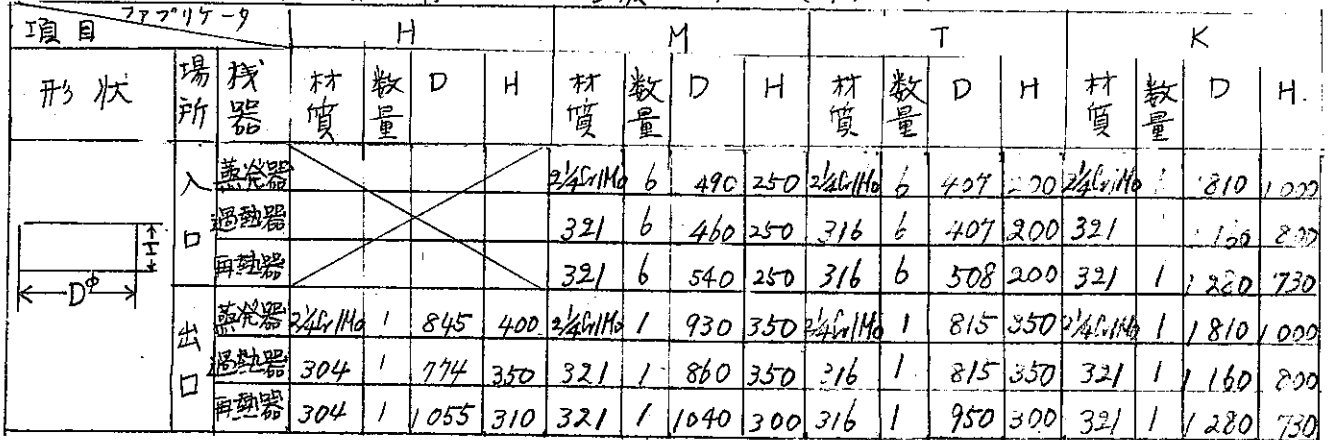 項目 ファブリケータ H M T K
形状 場所 機器 材質 数量 D H 材質 数量 D H 材質 数量 D H 材質 数量 D H.
入口 蒸発器 2¼Cr1Mo 6 490 250 2¼Cr1Mo 6 407 200 2¼Cr1Mo 1 1810 1000
過熱器 321 6 460 250 316 6 407 200 321 800
再熱器 321 6 540 250 316 6 508 200 321 1 1280 730
Dφ H
出口 蒸発器 2¼Cr1Mo 1 845 400 2¼Cr1Mo 1 930 350 2¼Cr1Mo 1 815 350 2¼Cr1Mo 1 1810 1000
過熱器 304 1 774 350 321 1 860 350 316 1 815 350 321 1 1160 800
再熱器 304 1 1055 310 321 1 1040 300 316 1 950 300 321 1 1280 730